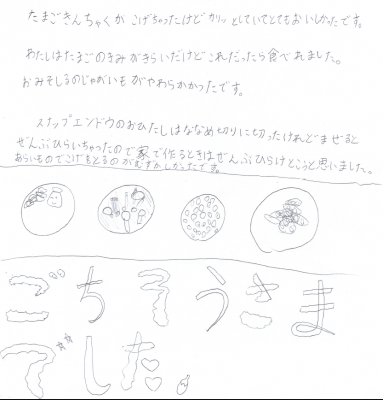 たまごきんちゃくが こげちゃったけど カリッ としていてとてもおいしかったです。
わたしはたまごのきみがきらいだけどこれだったら食べれました。
おみそしるのじゃがいもがやわらかかったです。
スナップエンドウのおひたしはななめ切りに切ったけれどまぜると
ぜんぶひらいちゃったので家で作るときはぜんぶひらけとこっと思いました。
あらいものでこげをとるのがむずかしかったです。
ごちそうさま
でした